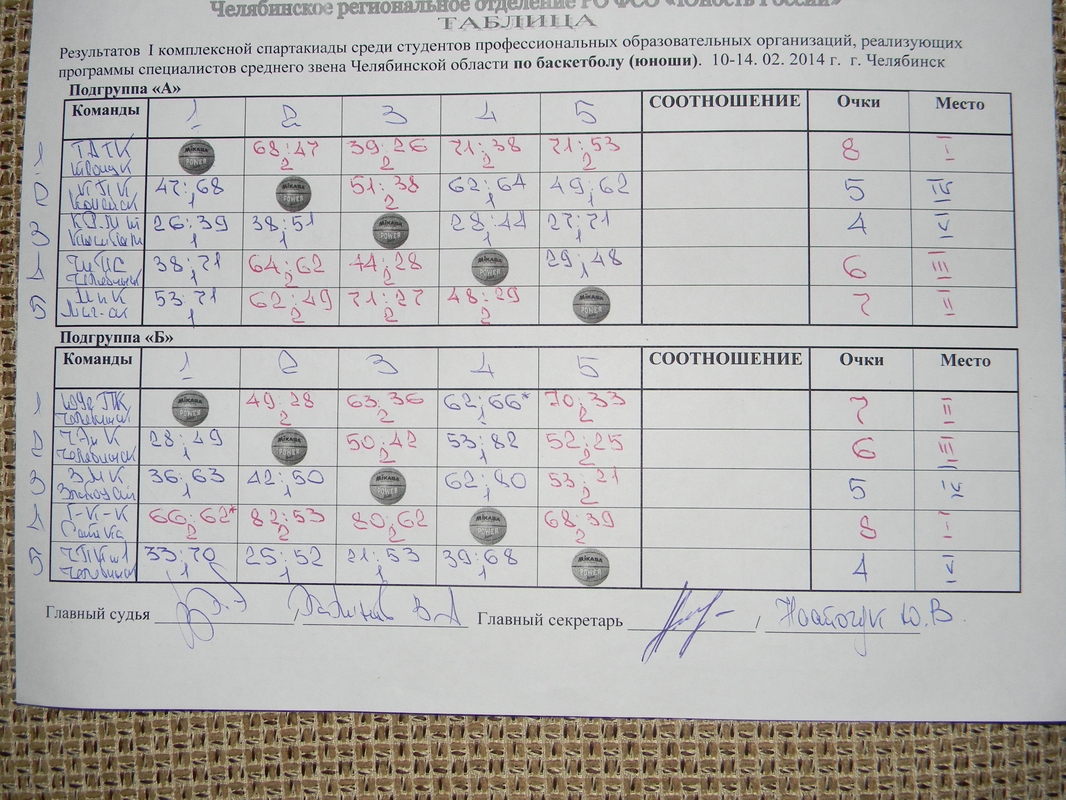 Челябинское региональное отделение РО ФСО «Юность России»
ТАБЛИЦА
Результатов I комплексной спартакиады среди студентов профессиональных образовательных организаций, реализующих
программы специалистов среднего звена Челябинской области по баскетболу (юноши). 10-14. 02. 2014 г. г. Челябинск
Подгруппа «А»
Команды 1 2 3 4 5 СООТНОШЕНИЕ Очки Место
1 68:47 39:26 71:38 71:53 8 I
2 2 2 2
2 47:68 51:38 62:64 49:62 5 IV
1 2 1 1
3 26:39 38:51 28:44 27:71 4 V
1 1 1 1
4 38:71 64:62 44:28 29:48 6 III
Челябинск 1 2 2 1
5 53:71 62:49 71:27 48:29 7 II
1 2 2 2
Подгруппа «Б»
Команды 1 2 3 4 5 СООТНОШЕНИЕ Очки Место
1 49:28 63:36 62:66* 70:33 7 II
Челябинск 2 2 1 2
2 28:49 50:42 53:82 52:25 6 III
Челябинск 1 2 1 2
3 ЗМК 36:63 42:50 62:80 53:21 5 IV
1 1 1 2
4 66:62* 82:53 80:62 68:39 8 I
Сатка 2 2 2 2
5 33:70 25:52 21:53 39:68 4 V
Челябинск 1 1 1 1
Главный судья / В.А Главный секретарь / Ю.В.
MIKASA
POWER